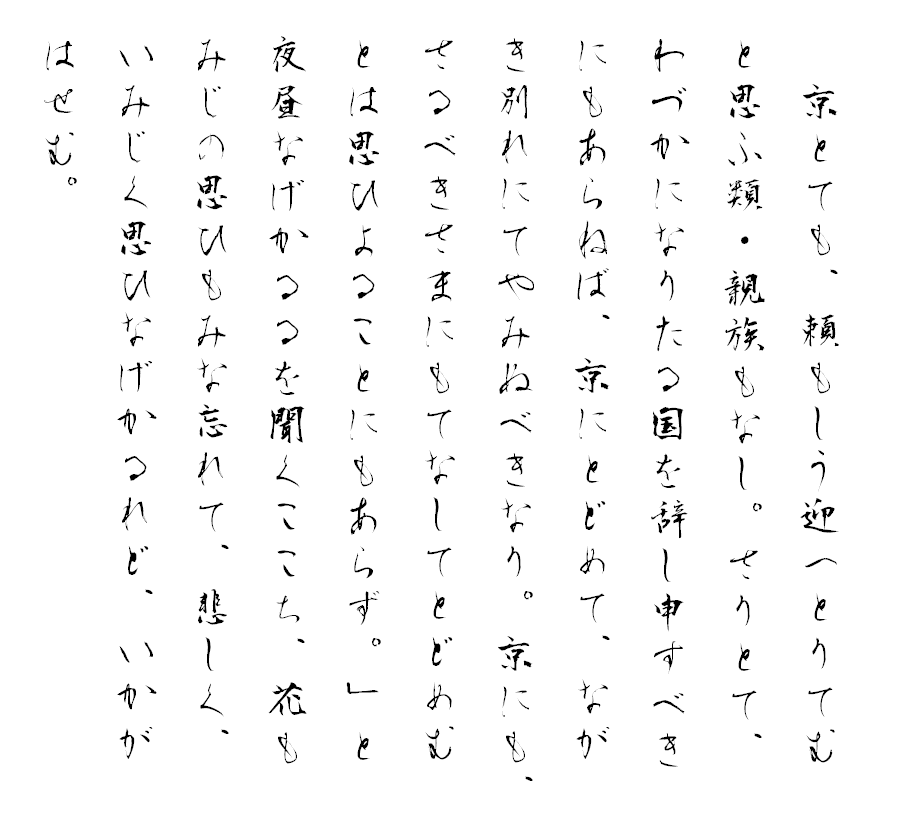 京とても、頼もしう迎へとりてむ
と思ふ類・親族もなし。さりとて、
わづかになりたる国を辞し申すべき
にもあらねば、京にとどめて、なが
き別れにてやみぬべきなり。京にも、
さるべきさまにもてなしてとどめむ
とは思ひよることにもあらず。」と
夜昼なげかるるを聞くここち、花も
みじの思ひもみな忘れて、悲しく、
いみじく思ひなげかるれど、いかが
はせむ。